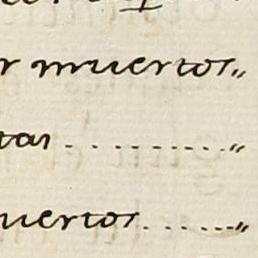 r muertos„
tas . . . . . . . . . . . „
uertos . . . . . . „